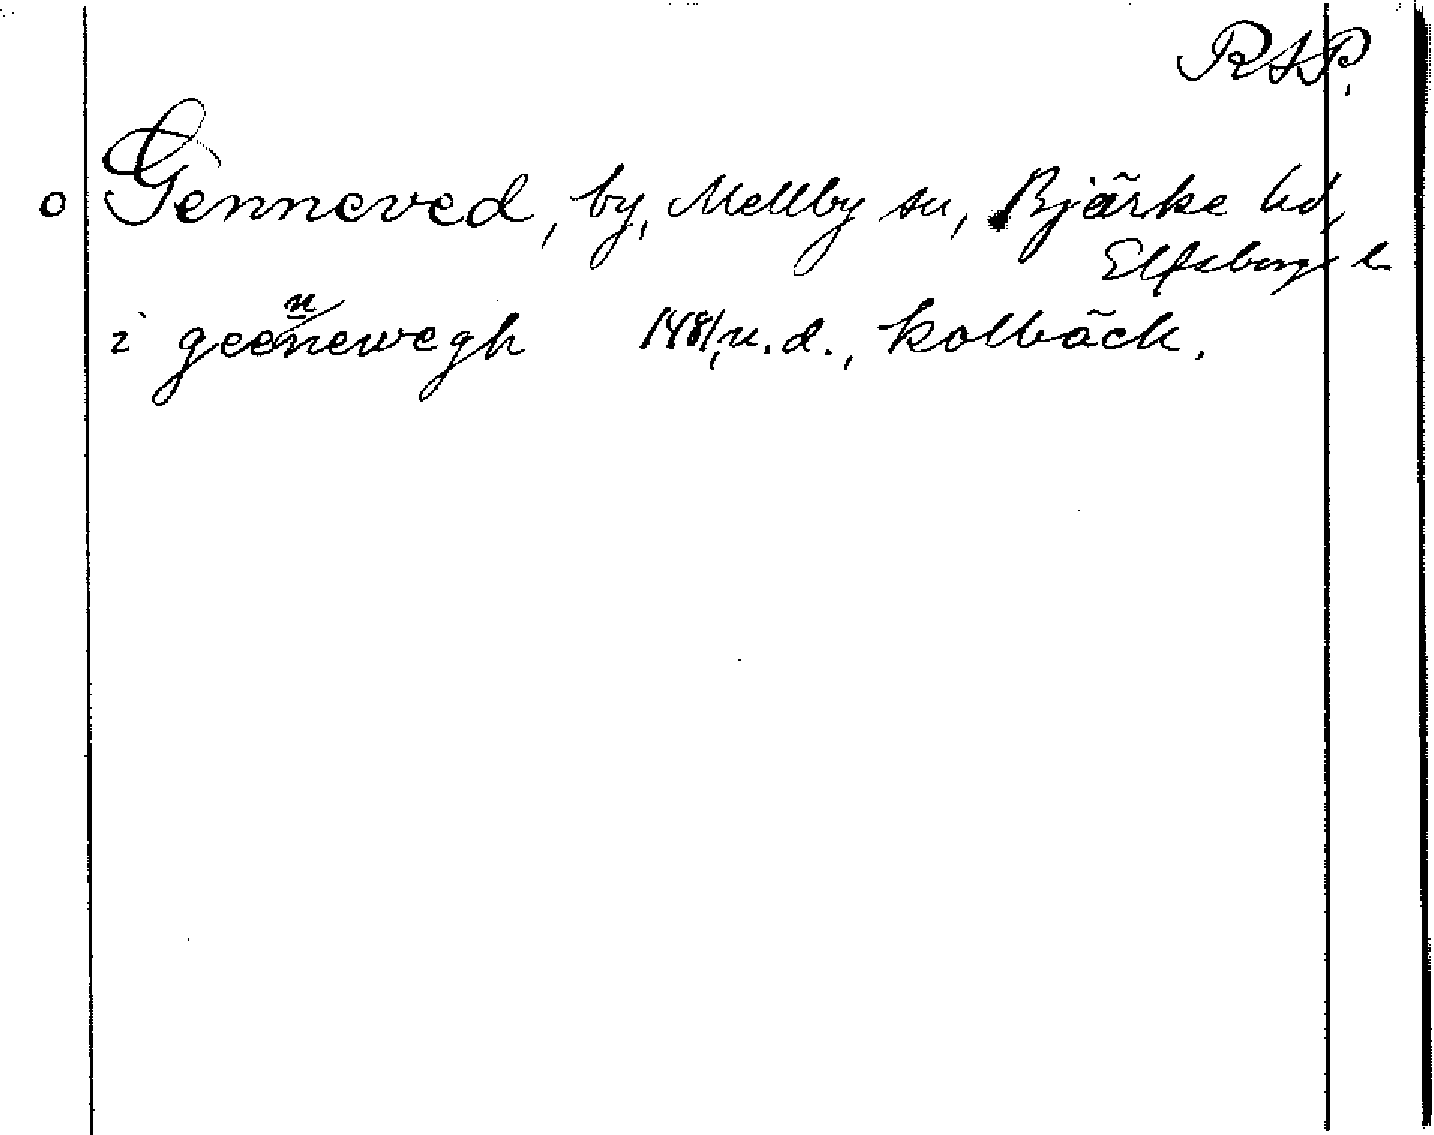 RAP.
o Genneved, by, Mellby sn, Bjärke hd,
Elfsborgs l.
n
i geenewegh 1481, u. d., kolbäck.